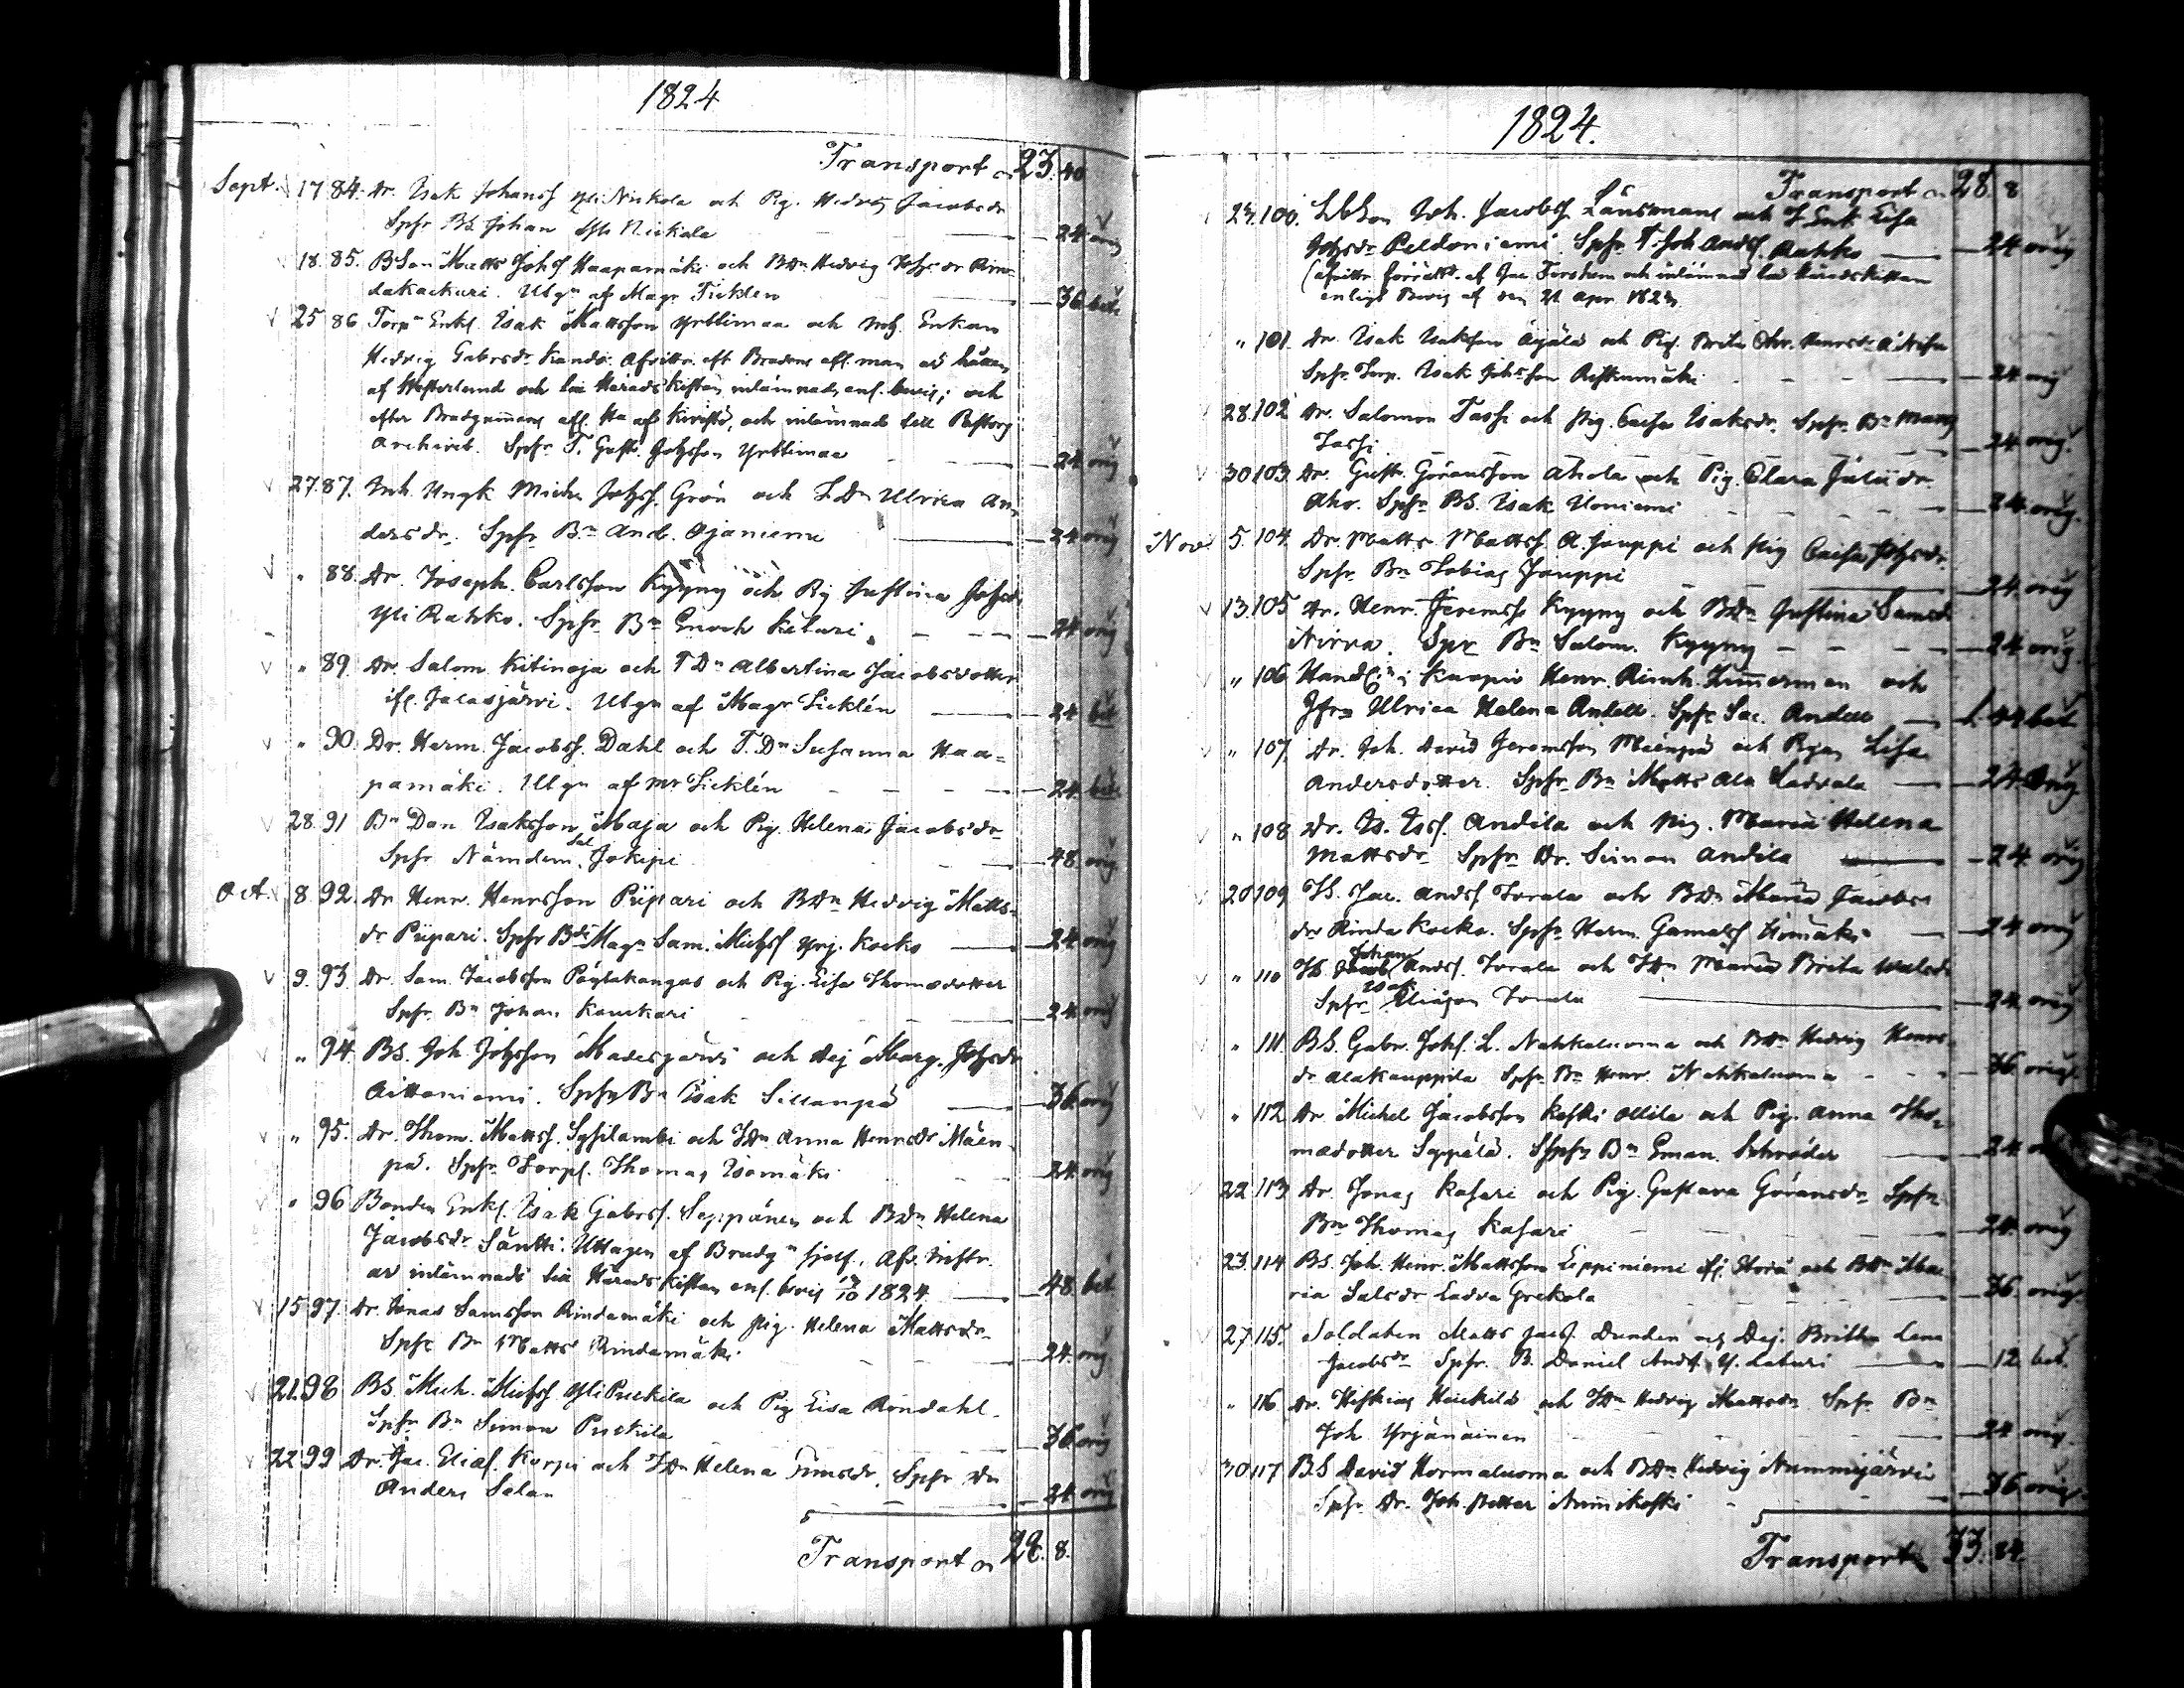 1824
Transport 23. 40
Sept. 17 84. Dr. Isak Johanss Yli Niskola och Pig. Hedvig Jacobsdr
Spfr BS. Johan Yli Niskala 24 orig
18. 85. BSon Matts Johss Haapamäki och BDn Hedvig Johsdr Rin-
dakackuri. Utgn af Magr Sicklén 36 bet
25 86 Torpn Enkl. Isak Mattsson Yrttimaa och Enkan
Hedvig Gabrsdr Kando. Afvittr. eft. Brudens afl. man är hållen
af Westerlund och i Häradskistan inlämnad, enl. bevis; och
efter Brudgummens afl. Hu af och inlämnad till Pastors
Archivet. Spfr T. Gust. Johsson Yrttimaa 24 orig
27. 87. Inh. Ungk Mich. Johss. Grön och T.Dn Ulrica An-
dersdr. Spfr Bn And. Ojaniemi 24 orig
" 88. Dr. Joseph Carlsson Kyyny och Pig Justina Johsdr
Yli Rahko. Spfr Bn Enoch Kituri 24 orig
" 89. Dr. Salom. Kitinoja och TDn Albertina Jacobsdotter
ifr. Jalasjärvi. Utgn af Magr Sicklén 24 bet
" 90. Dr. Herm. Jacobss. Dahl och T.Dn Susanna Haa-
pamäki. Utgn af Mr Sicklén 24 bet
28. 91 Bn Dan Isaksson Maja och Pig. Helena Jacobsdr
Spfr Nämdem. Sal. Jokipi 48 orig
Oct. 8. 92. Dr Henr. Henrsson Piipari och BDn Hedvig Matts-
dr Piipari. Spfr Bdr Magn Sam. Michss Yrj. Kocko 24 orig
9. 93. Dr. Sam. Jacobsson Pöytäkangas och Pig. Lisa Thomædotter
Spfr Bn Johan Kauckari 24 orig
" 94. BS. Joh. Johsson Madesjärvi och Dej Marg. Johsdr
Aittoniemi. Spfr Bn Isak Sillanpä 36 orig
" 95. Dr. Thom. Mattss. Syysilambi och TDn Anna Henrsdr Mäen-
pä. Spfr Torps. Thomas Isomäki 24 orig
" 96 Bonden Enkl. Isak Gabrss. Seppänen och BDn Helena
Jacobsdr Säntti. Uttagen af Brudgn sjelf. Afv. Instr.
är inlämnadt i Häradskistan enl. bevis 1824 48 bet
15 97. Dr. Jonas Samsson Rindamäki och Pig. Helena Mattsdr
Spfr Bn Matts Rindamäki 24 orig
21. 98 BS. Mich. Michss Yli Puskila och Pig Lisa Röndahl.
Spfr Bn Simon Puskila 36 orig
22 99 Dr. Jac. Eliæs. Karpi och TDn Helena Simsdr. Spfr Dn
Anders Salan 24 orig
5
Transport 28. 8.
1824.
Transport 28. 8
24. 100. Joh. Jacobss Länsmans och T Enk. Lisa
Johsdr Peldoniemi Spfr T. Joh. Andss. Rahko 24 orig
(Afvittr. förrättd. af Jac. Forshem och inlämnad i Häradskistan
enligt Bevis af den 21 Apr. 1824.
" 101. Dr. Isak Isaksson Äijälä och Pig. Brita Chr. Henrsdr
Spfr Torp. Isak Johsson Ristkumäki 24 orig
28. 102 Dr. Salomon Tassi och Pig. Caisa Isaksdr. Spfr Bn Matts
Tassi 24 orig.
30 103. Dr. Gust. Göransson Ahola och Pig. Clara Juliidr
Aho. Spfr BS. Isak Uoniemi 24 orig.
Nov. 5. 104. Dr. Matts Mattss. A. Jauppi och Pig Caisa Johsdr.
Spfr Bn Tobias Jauppi 24 orig
13. 105 Dr. Henr. Jeremss Kyyny och BDn Justina Samsdr
Nirva. Spr Bn Salom. Kyyny 24 orig.
" 106 Handln i Kuopio Henr. Rinh. Zimmerman och
Jfrn Ulrica Helena Andell. Spfr Sac. Andell bet
" 107. Dr. Joh. David Jeremsson Mäenpä och Pigan Lisa
Andersdotter. Spfr Bn Matts Ala Ladvala 24 orig
" 108 Dr. Is. Iss. Andila och Pig. Maria Helena
Mattsdr Spfr Dr. Simon Andila 24 orig
20 109 TS. Jac. Andss Torala och BDn Maria Jacobs-
dr Rinda Kocko. Spfr Herm. Gamalss Hömäki 24 orig
" 110 TS. Johan Andss. Torala och TDn Maria Brita
Spfr Isak Eliæson Torala 24 orig
" 111 BS. Gabr. Johs. L. Nahkaluoma och BDn Hedvig Henrs-
dr Alakauppila Spfr Bn Henr. Nahkaluoma 36 orig.
" 112 Dr. Michel Jacobsson Koski Ollila och Pig. Anna Tho-
mædotter Seppälä. Spfr Bn Eman. Schröder 24
22 113 Dr. Jonas Kasari och Pig. Gustava Göransdr Spfr
Bn Thomas Kasari 24 orig
23. 114 BS. Joh. Henr. Mattsson Leppiniemi ifr Storå och BDn Ma-
ria Salsdr Ladva Grekola 36 orig.
27 115. Soldaten Matts Jacs. Dunden och Dej. Britha Lena
Jacobsdr Spfr. B. Daniel Andss. Y. Laturi 12 bet.
" 116 Dr. Hiskias Heickilä och TDn Hedvig Mattsdr Spfr Bn
Joh Yrjänäinen 24 orig.
30 117 BS David Hormaluoma och BDn Hedvig Nummijärvi
Spfr Dr. Joh. Petter Numikoski 36 orig.
5
Transport 33. 84.